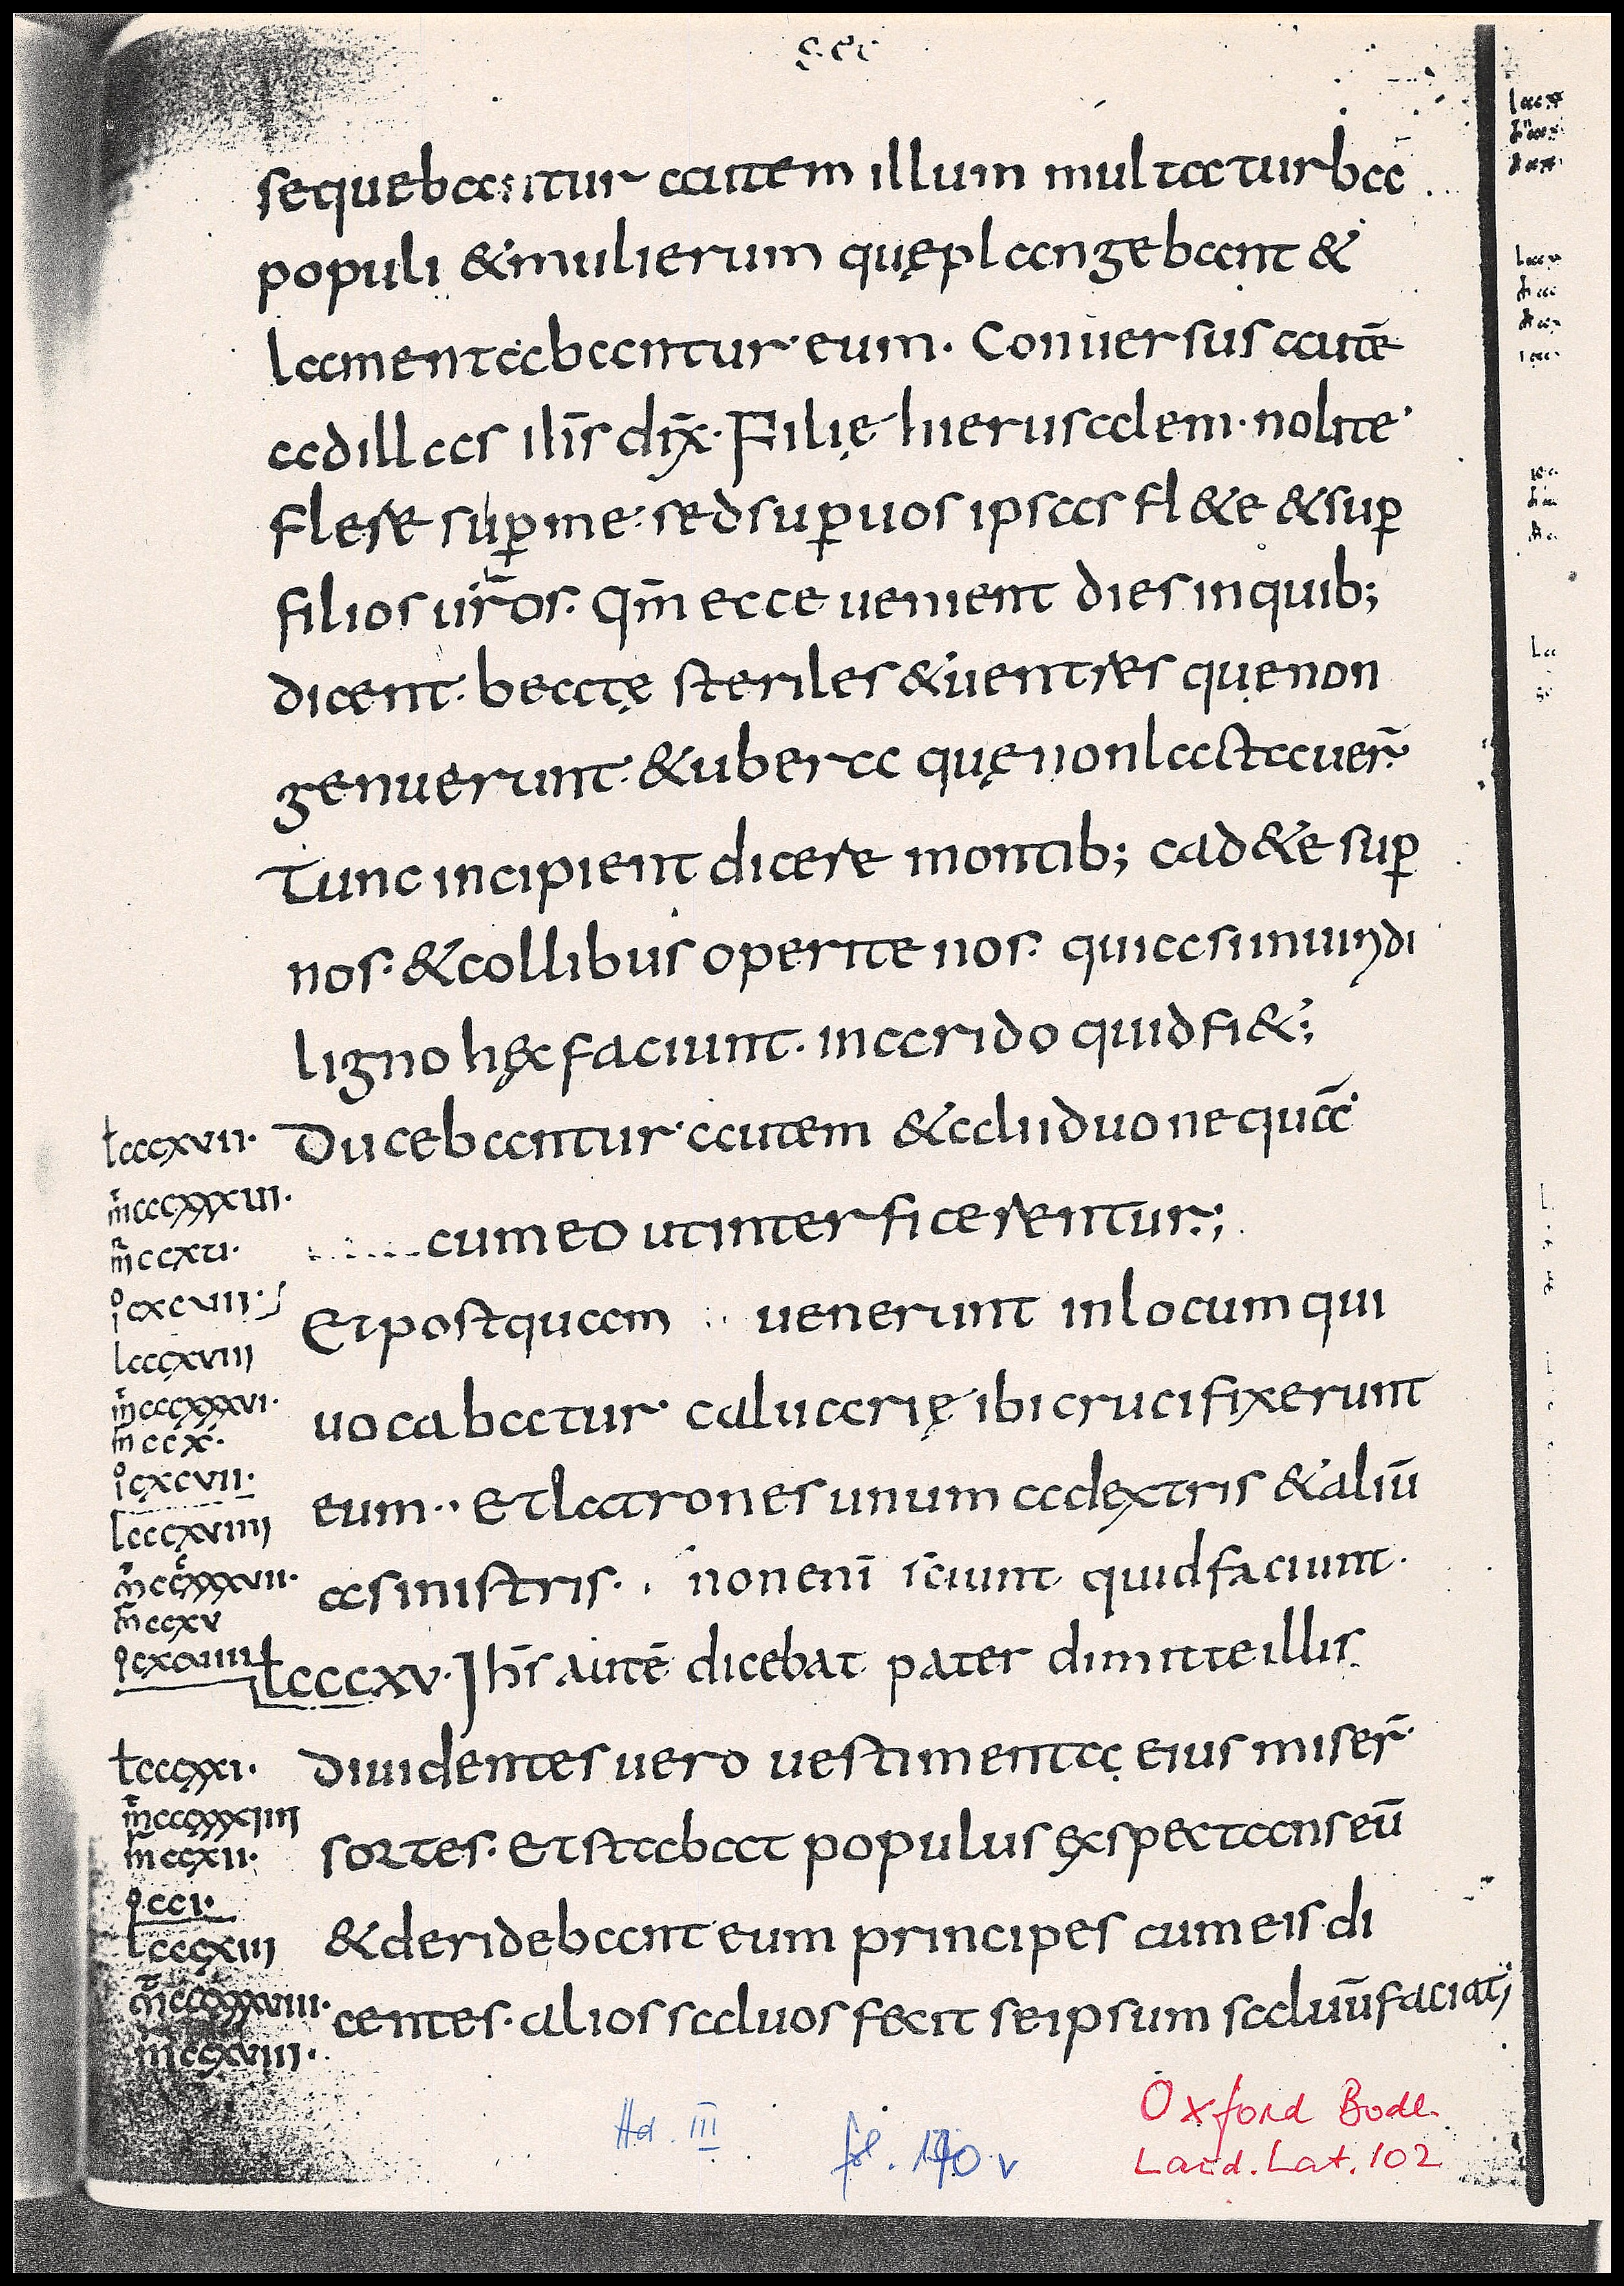 sequebantur autem illum multa turba
populi & mulierum quę plangebant &
lamentabantur eum. Conuersus autē
ad illas ih̄s dix̄. Filię hierusalem. nolite
flere sup̱ me. sed sup̱ uos ipsas fl&e & sup̱
filios ur̄os. Qm̄ ecce uenient dies in quib;
dicent. beatę steriles & uentres quę non
genuerunt. & ubera quę non lactauer̄
Tunc incipient dicere montib; cad&e sup̱
nos. & collibus operite nos. quia si in uiridi
ligno hęc faciunt. in arido quid fi&;
lcccxvii. Ducebantur autem & alii duo nequā
m̄cccxxxvi.
m̄ccxvi. cum eo ut interficerentur;
cxcvii. Et postquam uenerunt in locum qui
lcccxviii
m̄cccxxxvi. uocabatur caluarię ibi crucifixerunt
m̄ccx.
cxcvii.
eum. Et latrones unum a dextris & aliū
lcccxviiii
m̄ccxxxvii. a sinistris. non enī sciunt quid faciunt.
m̄ccxv
cxcviiii lcccxv. Ih̄s autē dicebat pater dimitte illis
lcccxxi. Diuidentes uero uestimenta eius miser̄
m̄ccxxxiiii
m̄ccxii. sortes. Et stabat populus exspectans eū
cci.
lcccxiii & deridebant eum principes cum eis di
m̄ccxxxviiii. centes. alios saluos fecit se ipsum saluū faciat
m̄ccxviii.
Hd. III fol. 190 v
Oxford Bodl.
Laud. Lat. 102